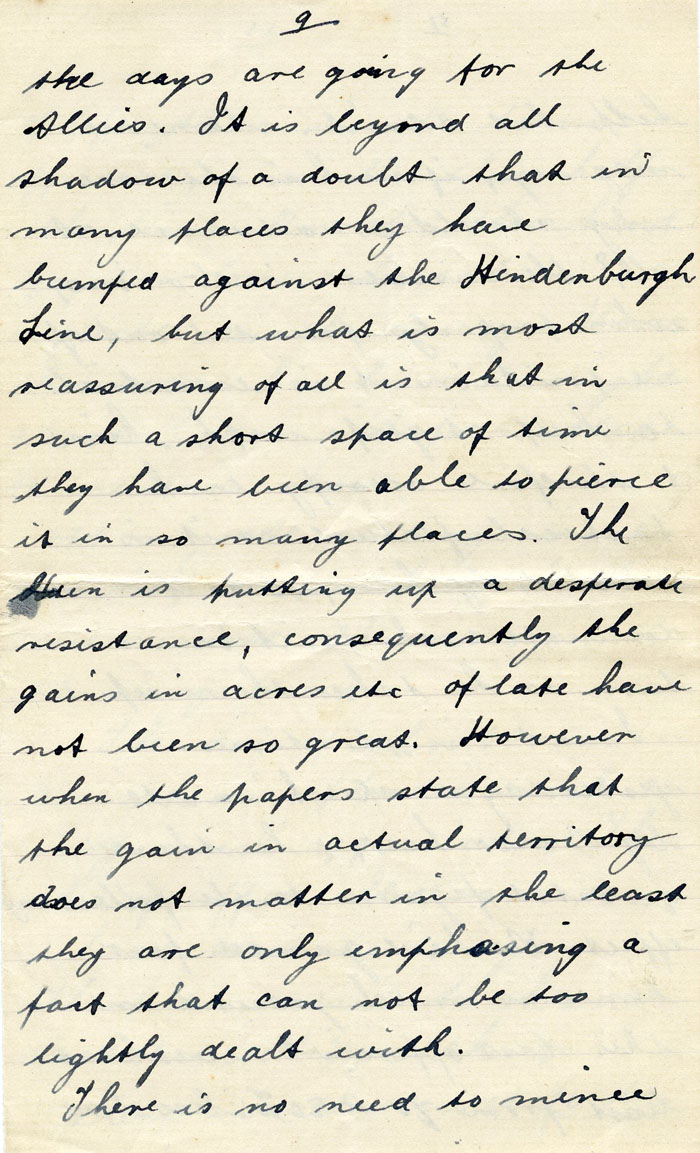 9
the days are going for the
Allies. It is beyond all
shadow of a doubt that in
many places they have
bumped against the Hindenburgh
Line, but what is most
reassuring of all is that in
such a short space of time
they have been able to pierce
it in so many places. The
Hun is putting up a desperate
resistance, consequently the
gains in acres etc of late have
not been so great. However
when the papers state that
the gain in actual territory
does not matter in the least
they are only emphasing a
fact that can not be too
lightly dealt with.
There is no need to mince